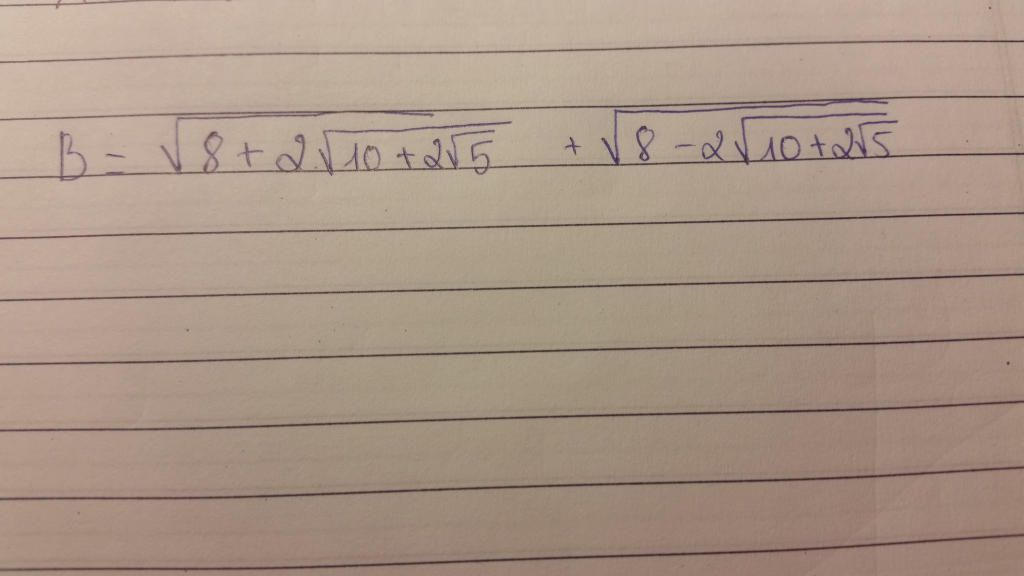 B = √(8 + 2√(10 + 2√5)) + √(8 - 2√(10 + 2√5))